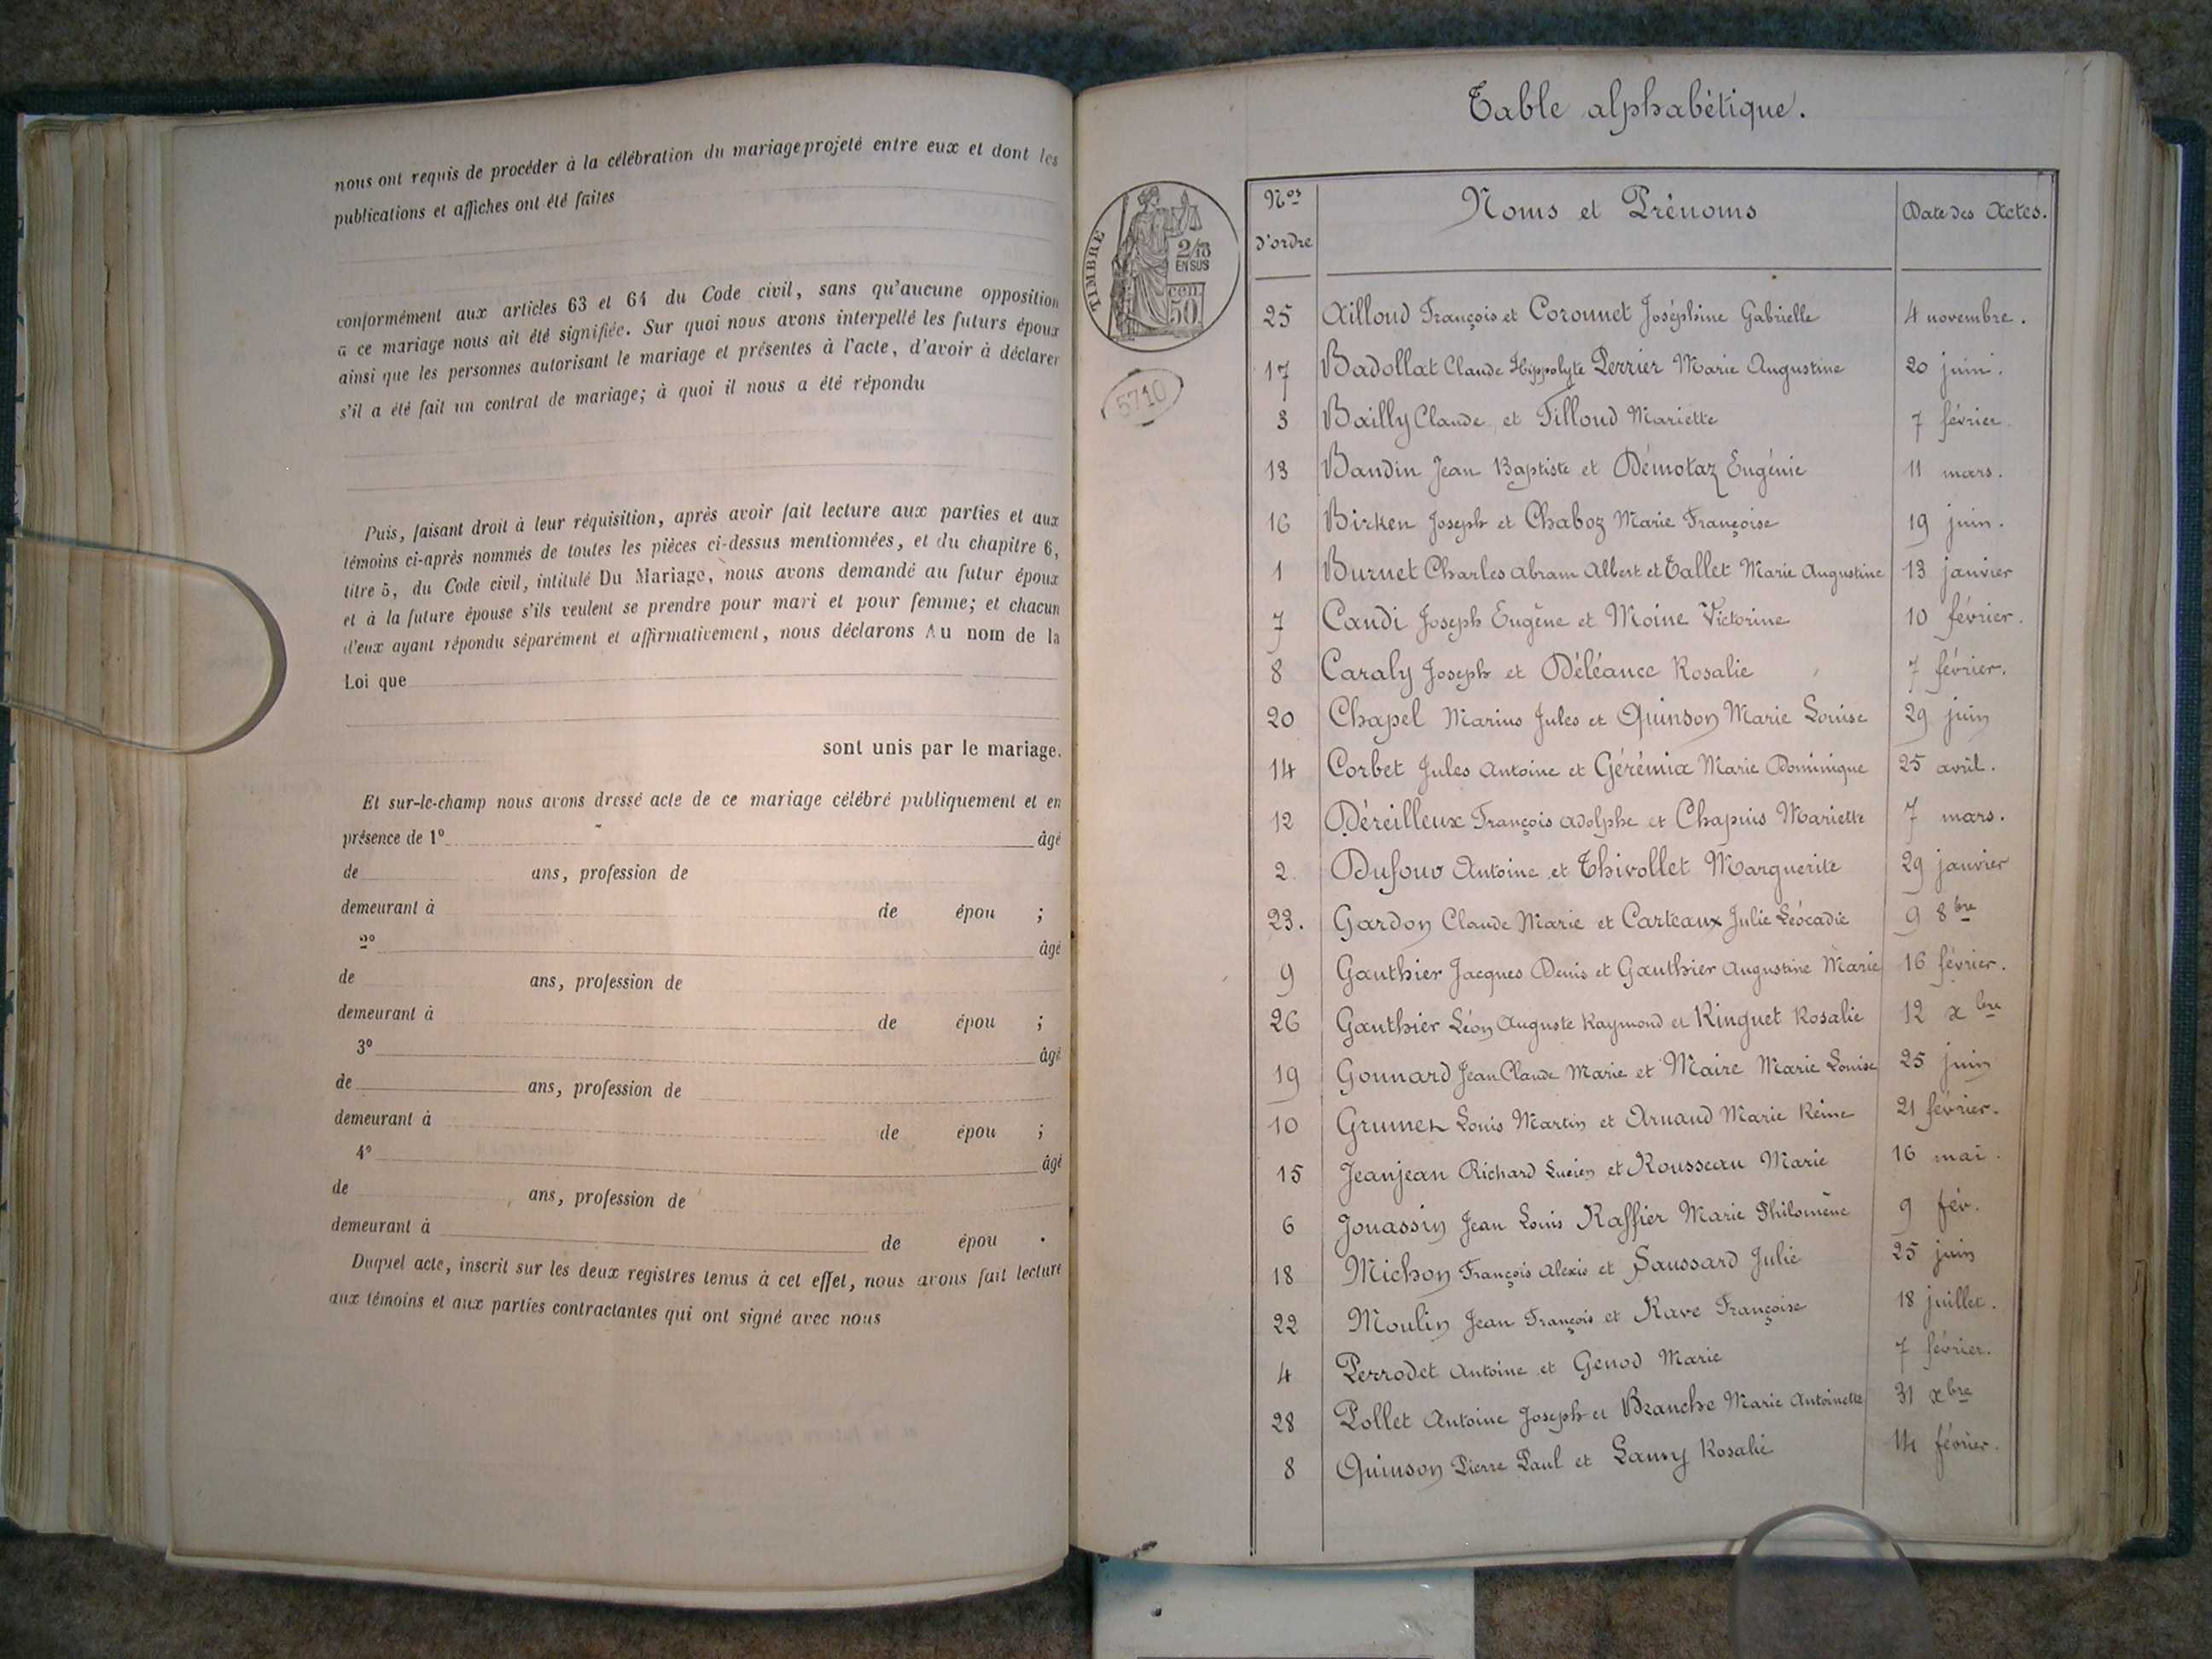 nous ont requis de procéder à la célébration du mariage projeté entre eux et dont les
publications et affiches ont été faites
conformément aux articles 63 et 64 du Code civil, sans qu'aucune opposition
à ce mariage nous ait été signifiée. Sur quoi nous avons interpellé les futurs époux
ainsi que les personnes autorisant le mariage et présentes à l'acte, d'avoir à déclarer
s'il a été fait un contrat de mariage; à quoi il nous a été répondu
Puis, faisant droit à leur réquisition, après avoir fait lecture aux parties et aux
témoins ci-après nommés de toutes les pièces ci-dessus mentionnées, et du chapitre 6,
titre 5, du Code civil, intitulé Du Mariage, nous avons demandé au futur époux
et à la future épouse s'ils veulent se prendre pour mari et pour femme; et chacun
d'eux ayant répondu séparément et affirmativement, nous déclarons Au nom de la
Loi que
sont unis par le mariage.
Et sur-le-champ nous avons dressé acte de ce mariage célébré publiquement et en
présence de 1° âgé
de ans, profession de
demeurant à de épou ;
2° âgé
de ans, profession de
demeurant à de épou ;
3° âgé
de ans, profession de
demeurant à de épou ;
4° âgé
de ans, profession de
demeurant à de épou .
Duquel acte, inscrit sur les deux registres tenus à cet effet, nous avons fait lecture
aux témoins et aux parties contractantes qui ont signé avec nous
Table alphabétique.
TIMBRE
2/10
EN SUS
cen
50
5710
Nos d'ordre Noms et Prénoms Date des Actes.
25 Ailloud François et Coronnet Joséphine Gabrielle 4 novembre.
17 Badollat Claude Hippolyte Perrier Marie Augustine 20 juin.
3 Bailly Claude et Tilloud Mariette 7 février.
13 Bandin Jean Baptiste et Démotaz Eugénie 11 mars.
16 Birken Joseph et Chaboz Marie Françoise 19 juin.
1 Burnet Charles Abram Albert et Tallet Marie Augustine 13 janvier
7 Candi Joseph Eugène et Moine Victorine 10 février.
8 Caraly Joseph et Déléance Rosalie 7 février.
20 Chapel Marius Jules et Quinson Marie Louise 29 juin
14 Corbet Jules Antoine et Gérémia Marie Dominique 25 avril.
12 Déreilleux François Adolphe et Chapuis Mariette 7 mars.
2. Dufour Antoine et Thivollet Marguerite 29 janvier
23. Gardon Claude Marie et Carteaux Julie Léocadie 9 8bre
9 Gauthier Jacques Denis et Gauthier Augustine Marie 16 février.
26 Gauthier Léon Auguste Raymond et Ringuet Rosalie 12 xbre
19 Gonnard Jean Claude Marie et Maire Marie Louise 25 juin
10 Grumet Louis Martin et Arnaud Marie Reine 21 février.
15 Jeanjean Richard Lucien et Rousseau Marie 16 mai.
6 Jouassin Jean Louis Raffier Marie Philomène 9 fév.
18 Michon François Alexis et Saussard Julie 25 juin
22 Moulin Jean François et Rave Françoise 18 juillet.
4 Perrodet Antoine et Genod Marie 7 février.
28 Pollet Antoine Joseph et Branche Marie Antoinette 31 xbre
8 Quinson Pierre Paul et Lamy Rosalie 14 février.